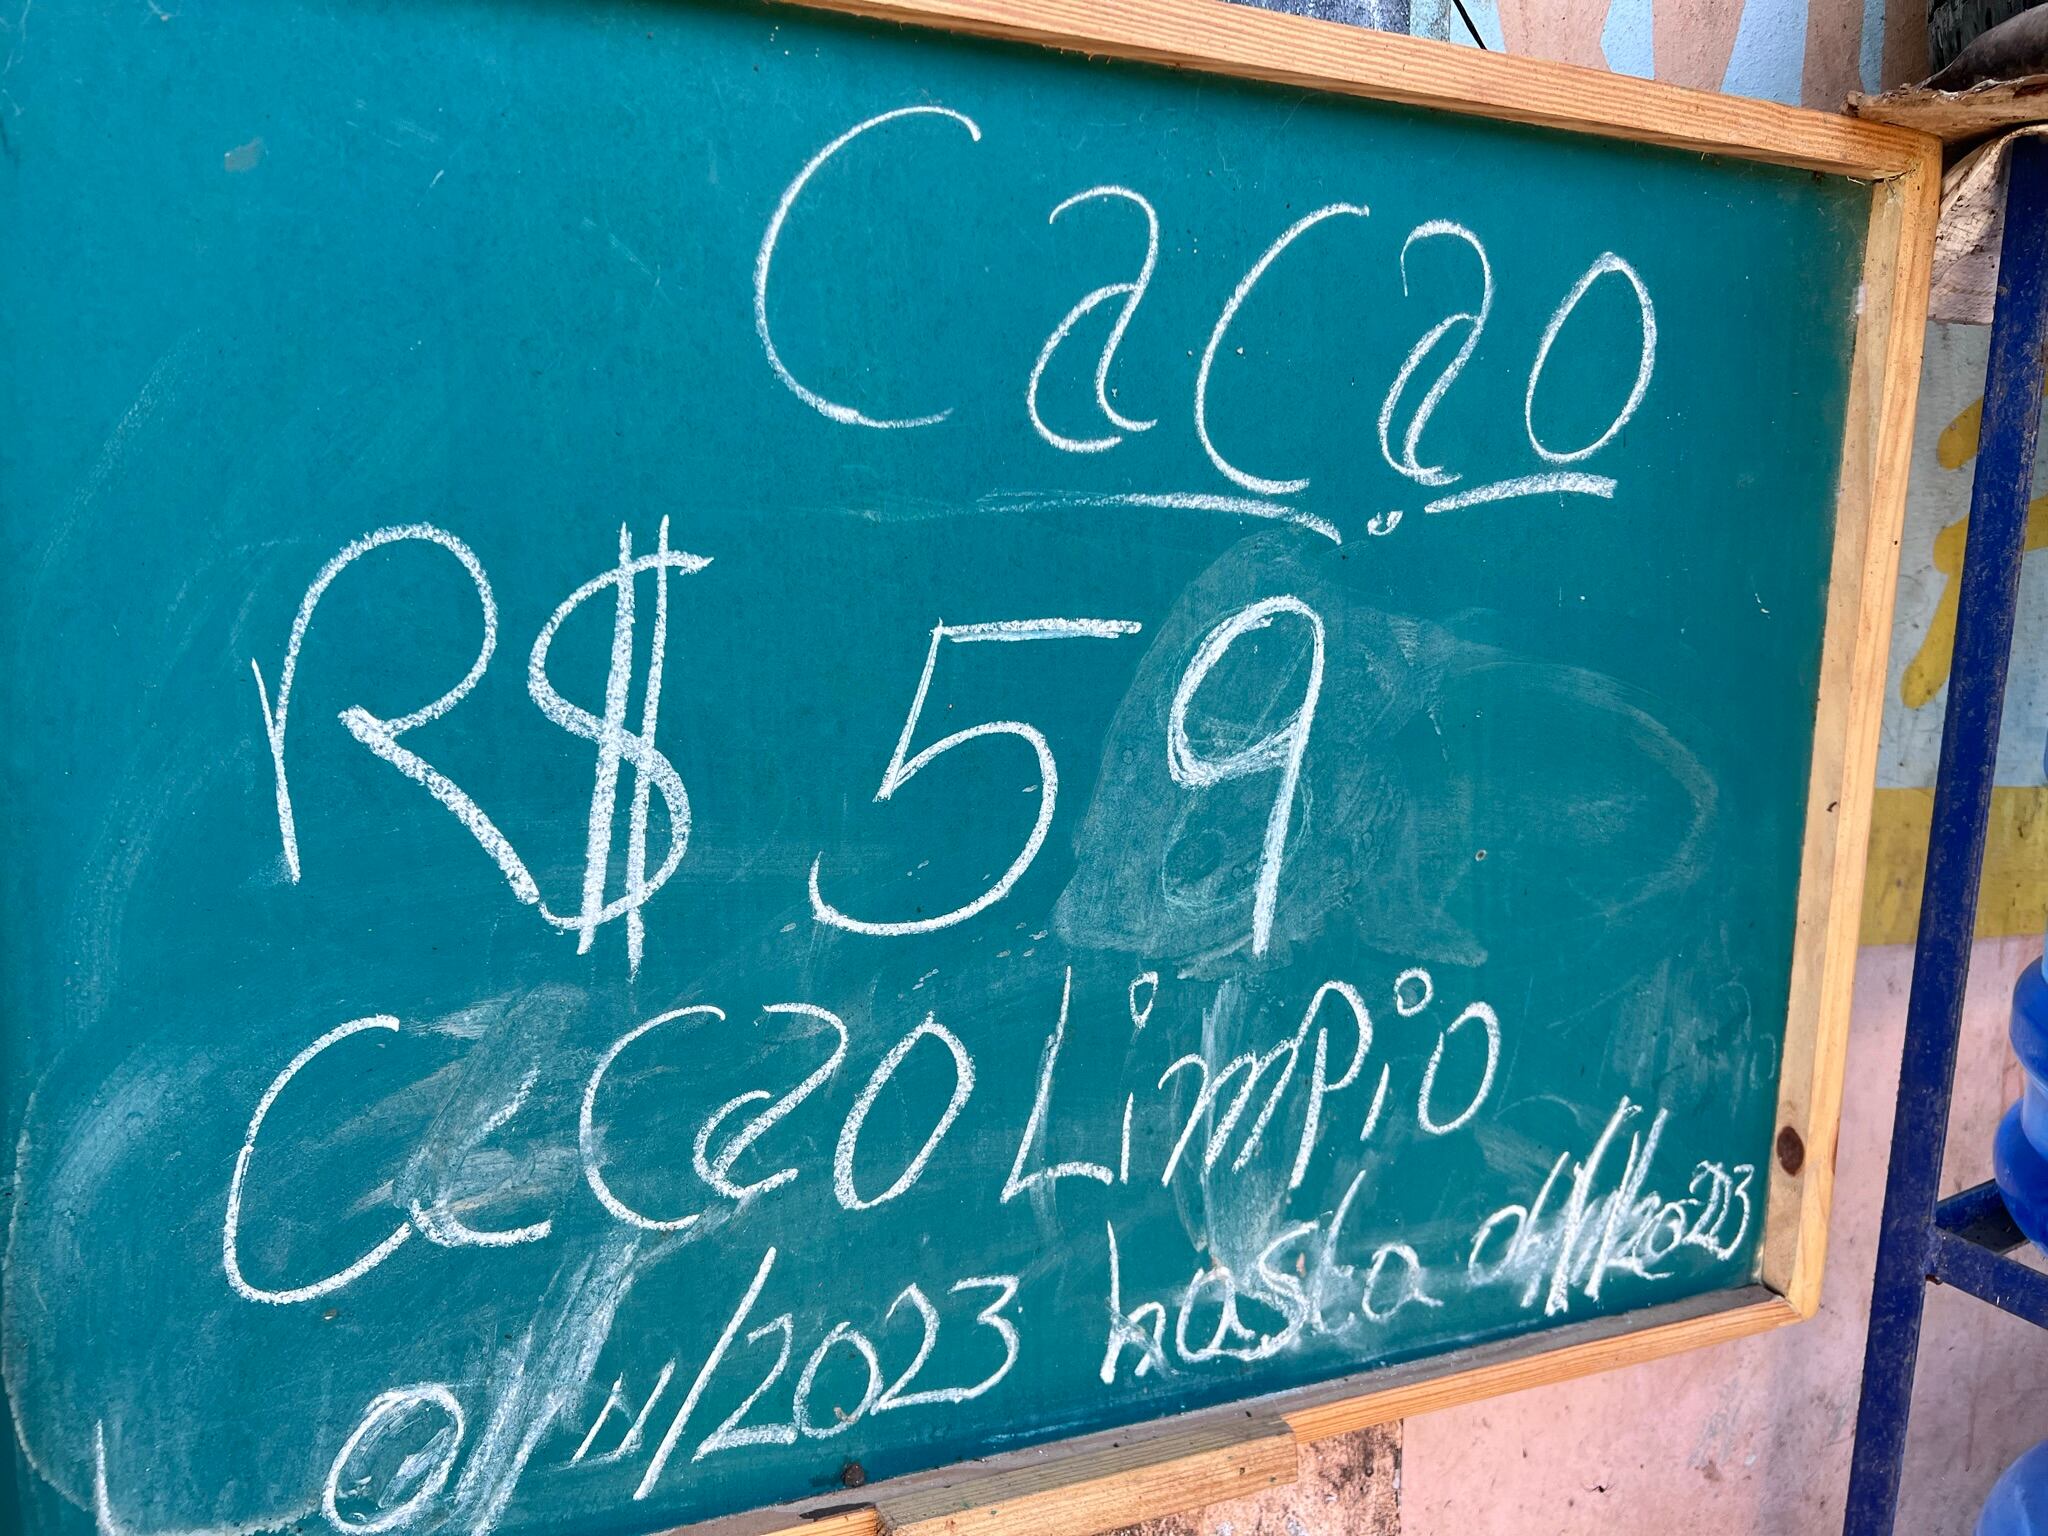 Cacao
R$ 59
Cacao Limpio
/2023 hasta /2023